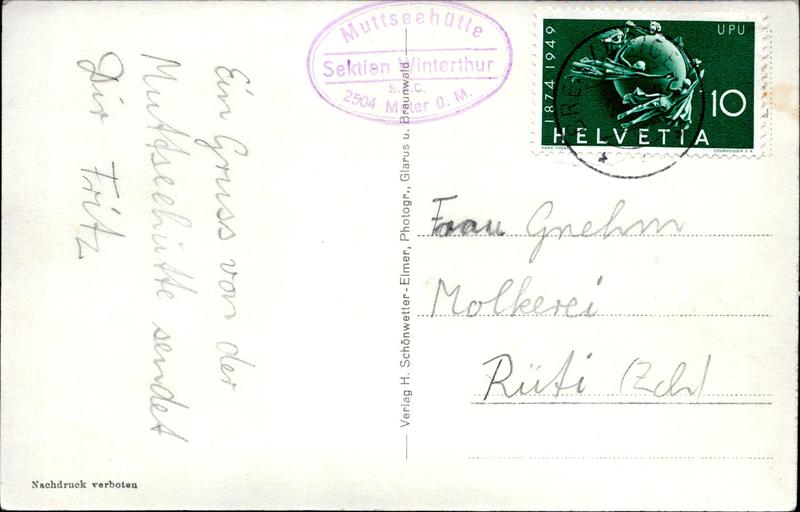 Muttseehütte
Sektion Winterthur
S.A.C.
2504 Meter ü. M.
1874 1949
UPU
10
HELVETIA
Ein Gruss von der
Muttseehütte sendet
Dir Fritz
Verlag H. Schönwetter-Elmer, Photogr., Glarus u. Braunwald
Frau Gnehm
Molkerei
Rüti (Zch)
Nachdruck verboten